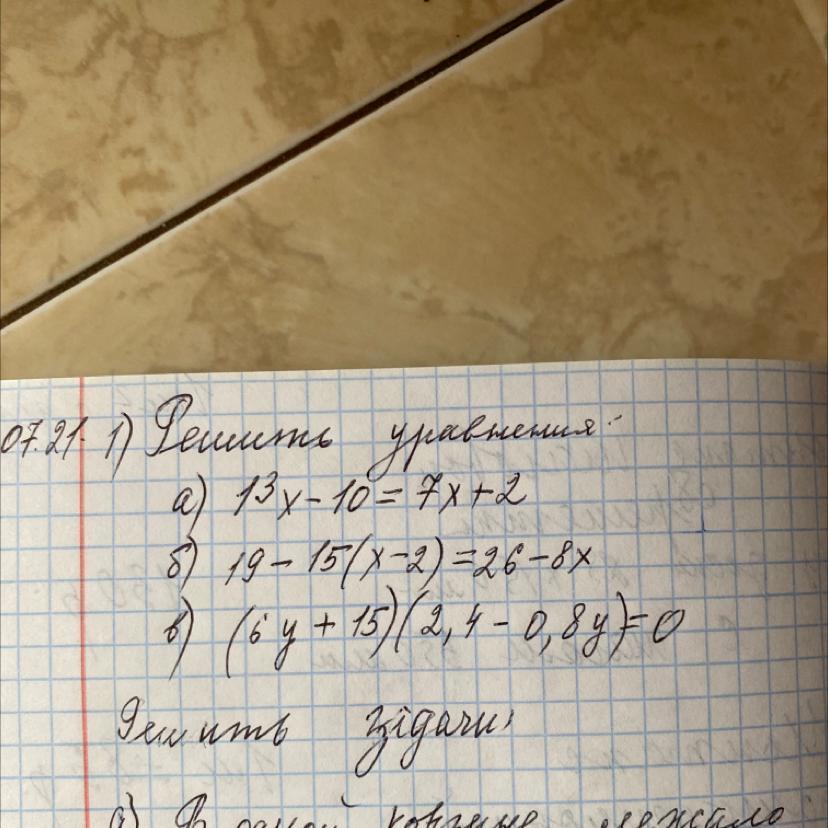 07.21. 1) Решить уравнения:
а) 13x - 10 = 7x + 2
б) 19 - 15(x - 2) = 26 - 8x
в) (6y + 15)(2,4 - 0,8y) = 0
Решить задачи:
а) В одной корзине лежало